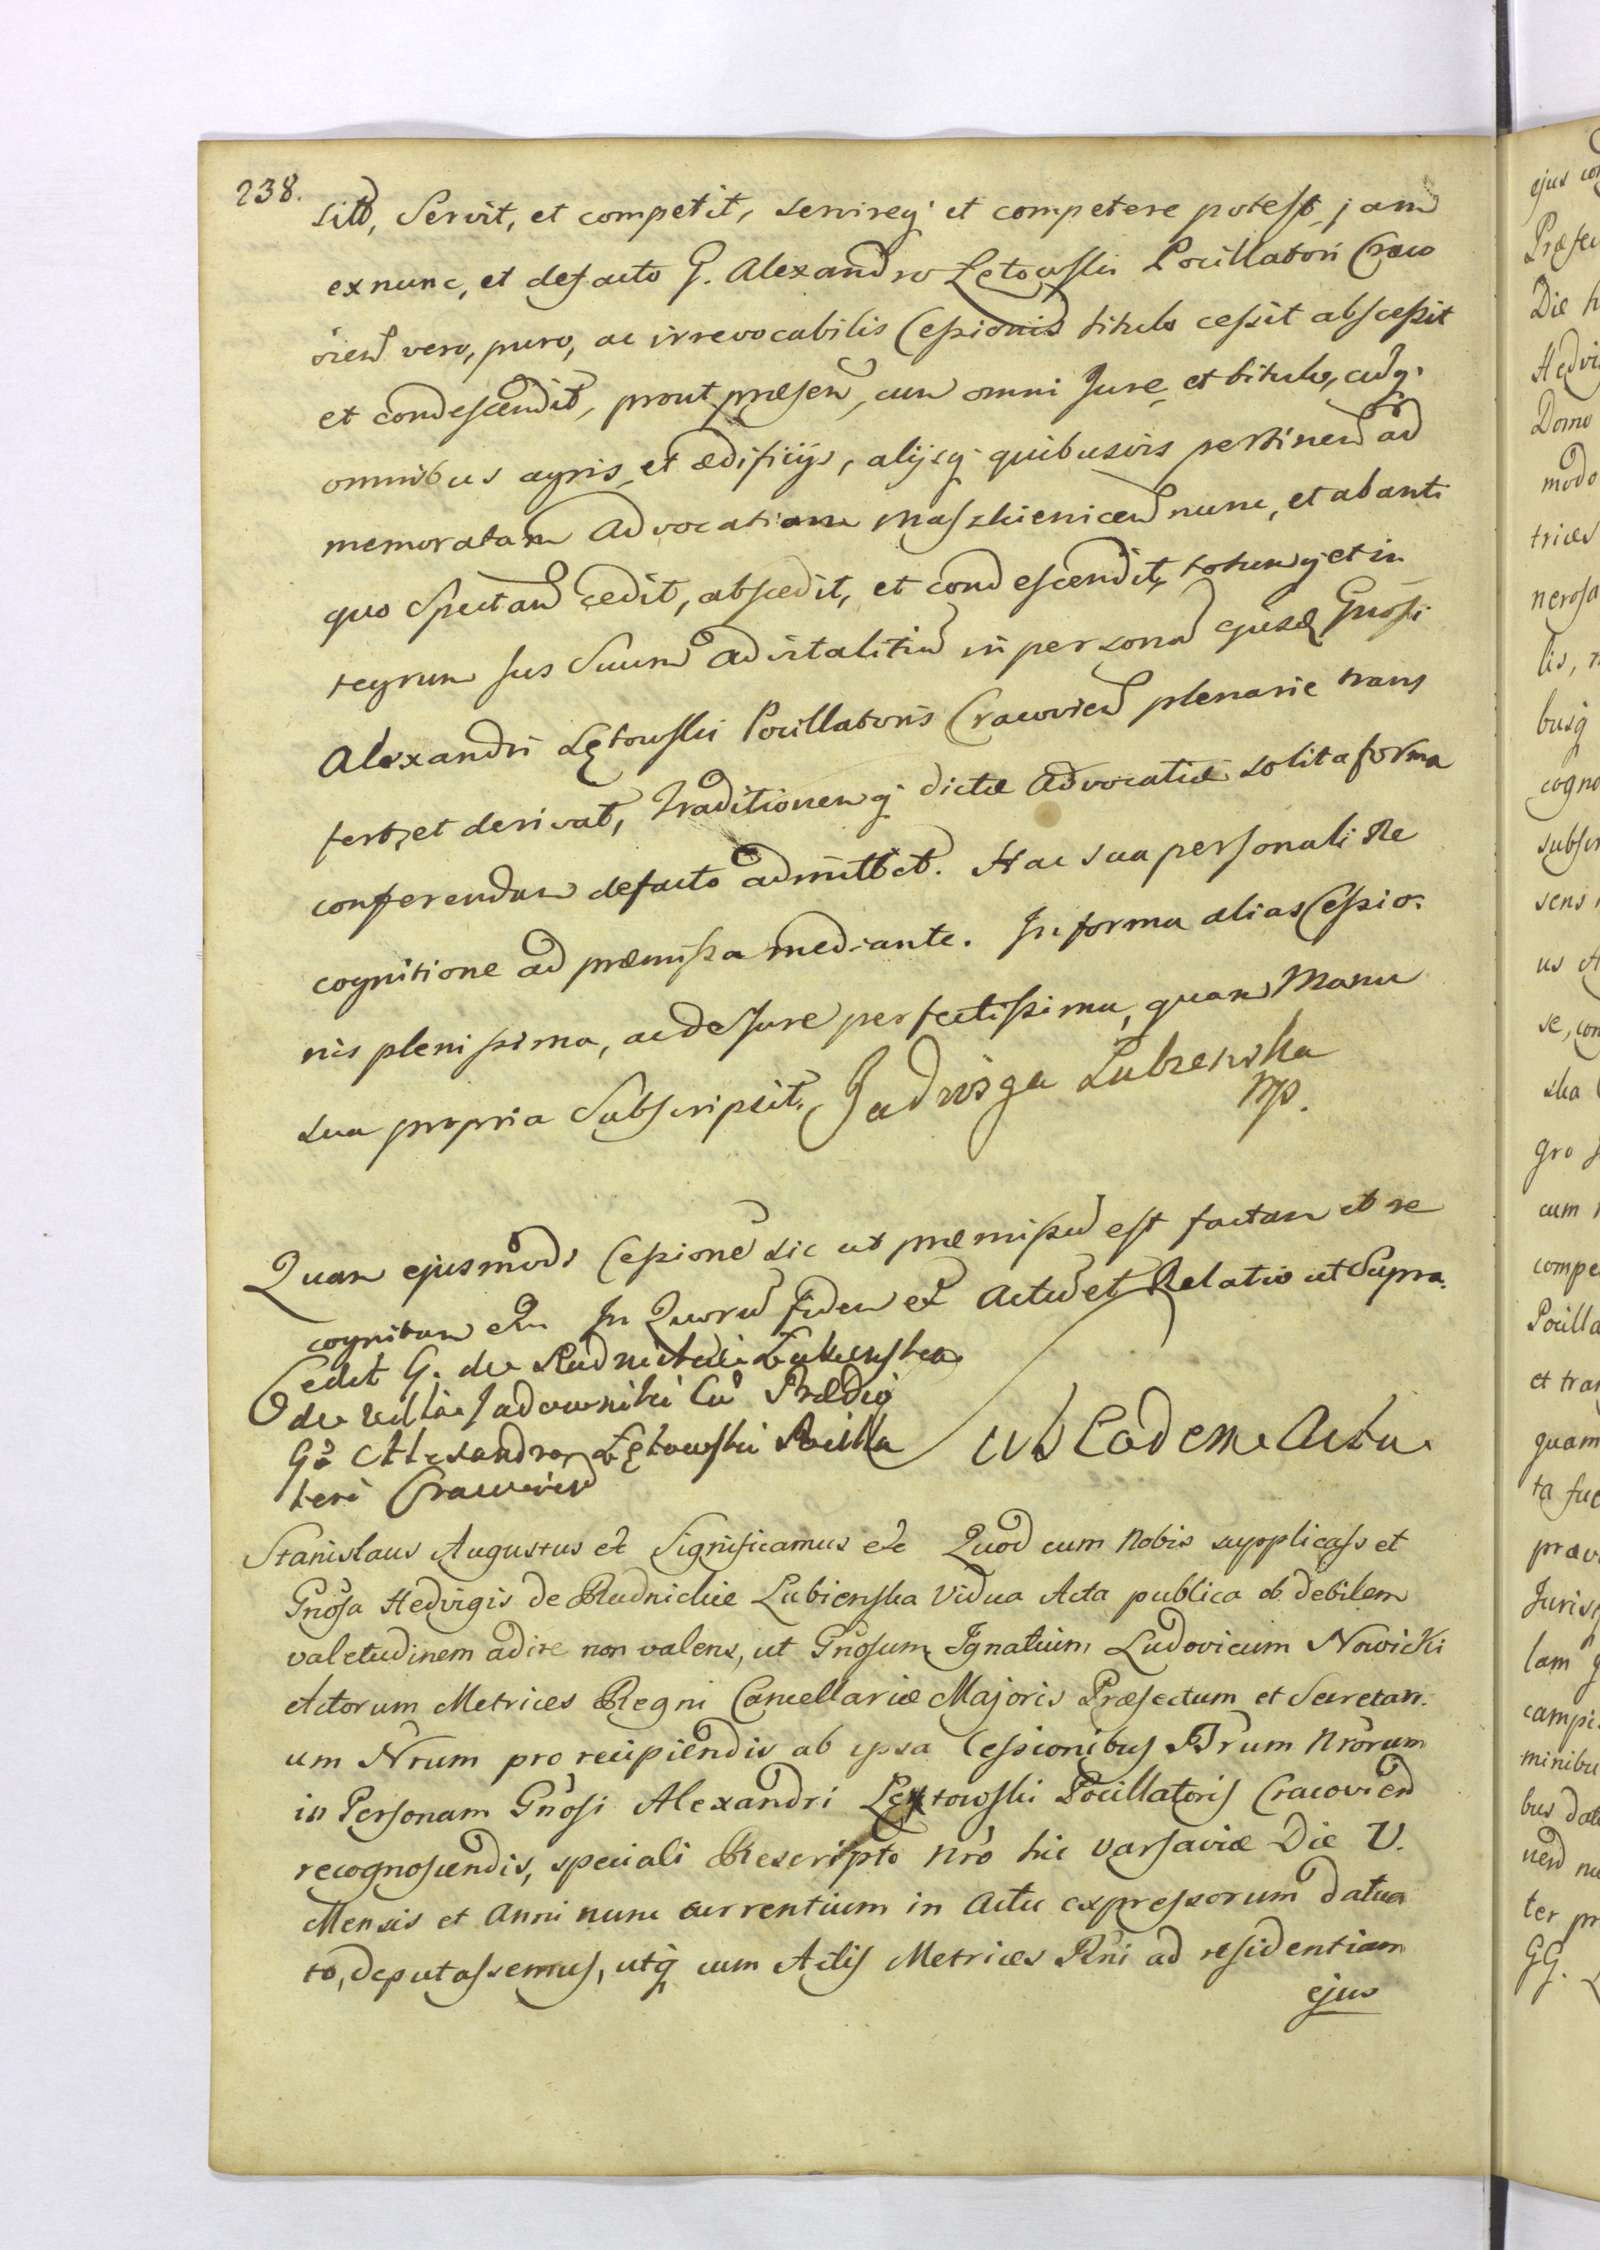 238.
sitb, Servit, et competit, servireq; et competere potest, jam
ex nunc, et defacto G. Alexandro Łętowski Pocillatori Craco
vien vero, puro, ac irrevocabilis Cessionis titulo cessit abscessit
et condescendit, prout præsen, cum omni Jure, et titulo, cuq;
omnibus agris, et ædificiys, alijsq; quibusvis pertinen ad
memoratam Advocatiam Maszkienicen nunc, et ab anti
quo Spectan cedit, abscedit, et condescendit, totumq; et in
tegrum Jus Suum advitalitiu in persona ejusd Gnosi
Alexandri Łętowski Pocillatoris Cracovien plenarie trans
fert, et derivat, Traditionemq; dictæ Advocatiæ solita forma
conferendam defacto admittet. Hac sua personali Re
cognitione ad præmissa mediante. In forma alias Cessio
nis plenissima, ac de Jure perfectissima, quam Manu
sua propria Subscripsit. Jadwiga Lubienska
mp.
Quam ejusmodi Cessione sic ut præmissu est factam et re
cognitam etc. In Quoru fidem etc Actu et Relatio ut Supra.
Cedit G. de Rudnickie Łubienska
de Villa Jadowniki Cu Prædio
Go Alexandro Łętowski Pocilla
tori Cracovien
Ub Eodem Actu
Stanislaus Augustus etc Significamus etc Quod cum Nobis supplicass et
Gnosa Hedvigis de Rudnickie Lubienska Vidua Acta publica ob debilem
valetudinem adire non valens, ut Gnosum Ignatium Ludovicum Nowicki
Actorum Metrices Regni Cancellariæ Majoris Præfectum et Secretari
um Nrum pro recipiendis ab ipsa Cessionibus Brum Nrorum
in Personam Gnosi Alexandri Lętowski Pocillatoris Cracovien
recognoscendis, speciali Rescripto Nro hic Varsaviæ Die V.
Mensis et Anni nunc currentium in Actu expressorum datua
to, deputassemus, utq; cum Actis Metrices Rni ad residentiam
ejus